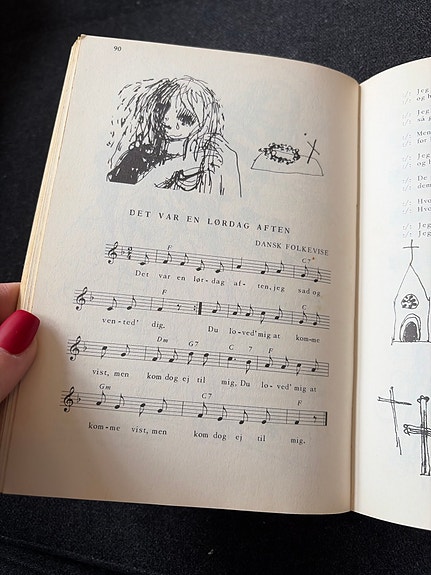 90
DET VAR EN LØRDAG AFTEN
DANSK FOLKEVISE
F C7+
Det var en lør-dag af-ten, jeg sad og
F C
ven-ted' dig. Du lo-ved' mig at komme
Dm G7 C 7 F
vist, men kom dog ej til mig, Du lo-ved' mig at
Gm C7 F
kom-me vist, men kom dog ej til mig.
Jeg
og h
Jeg
så j
Men
for
Jeg
og h
De
dem
Hvo
Hvo
Jeg
Jeg